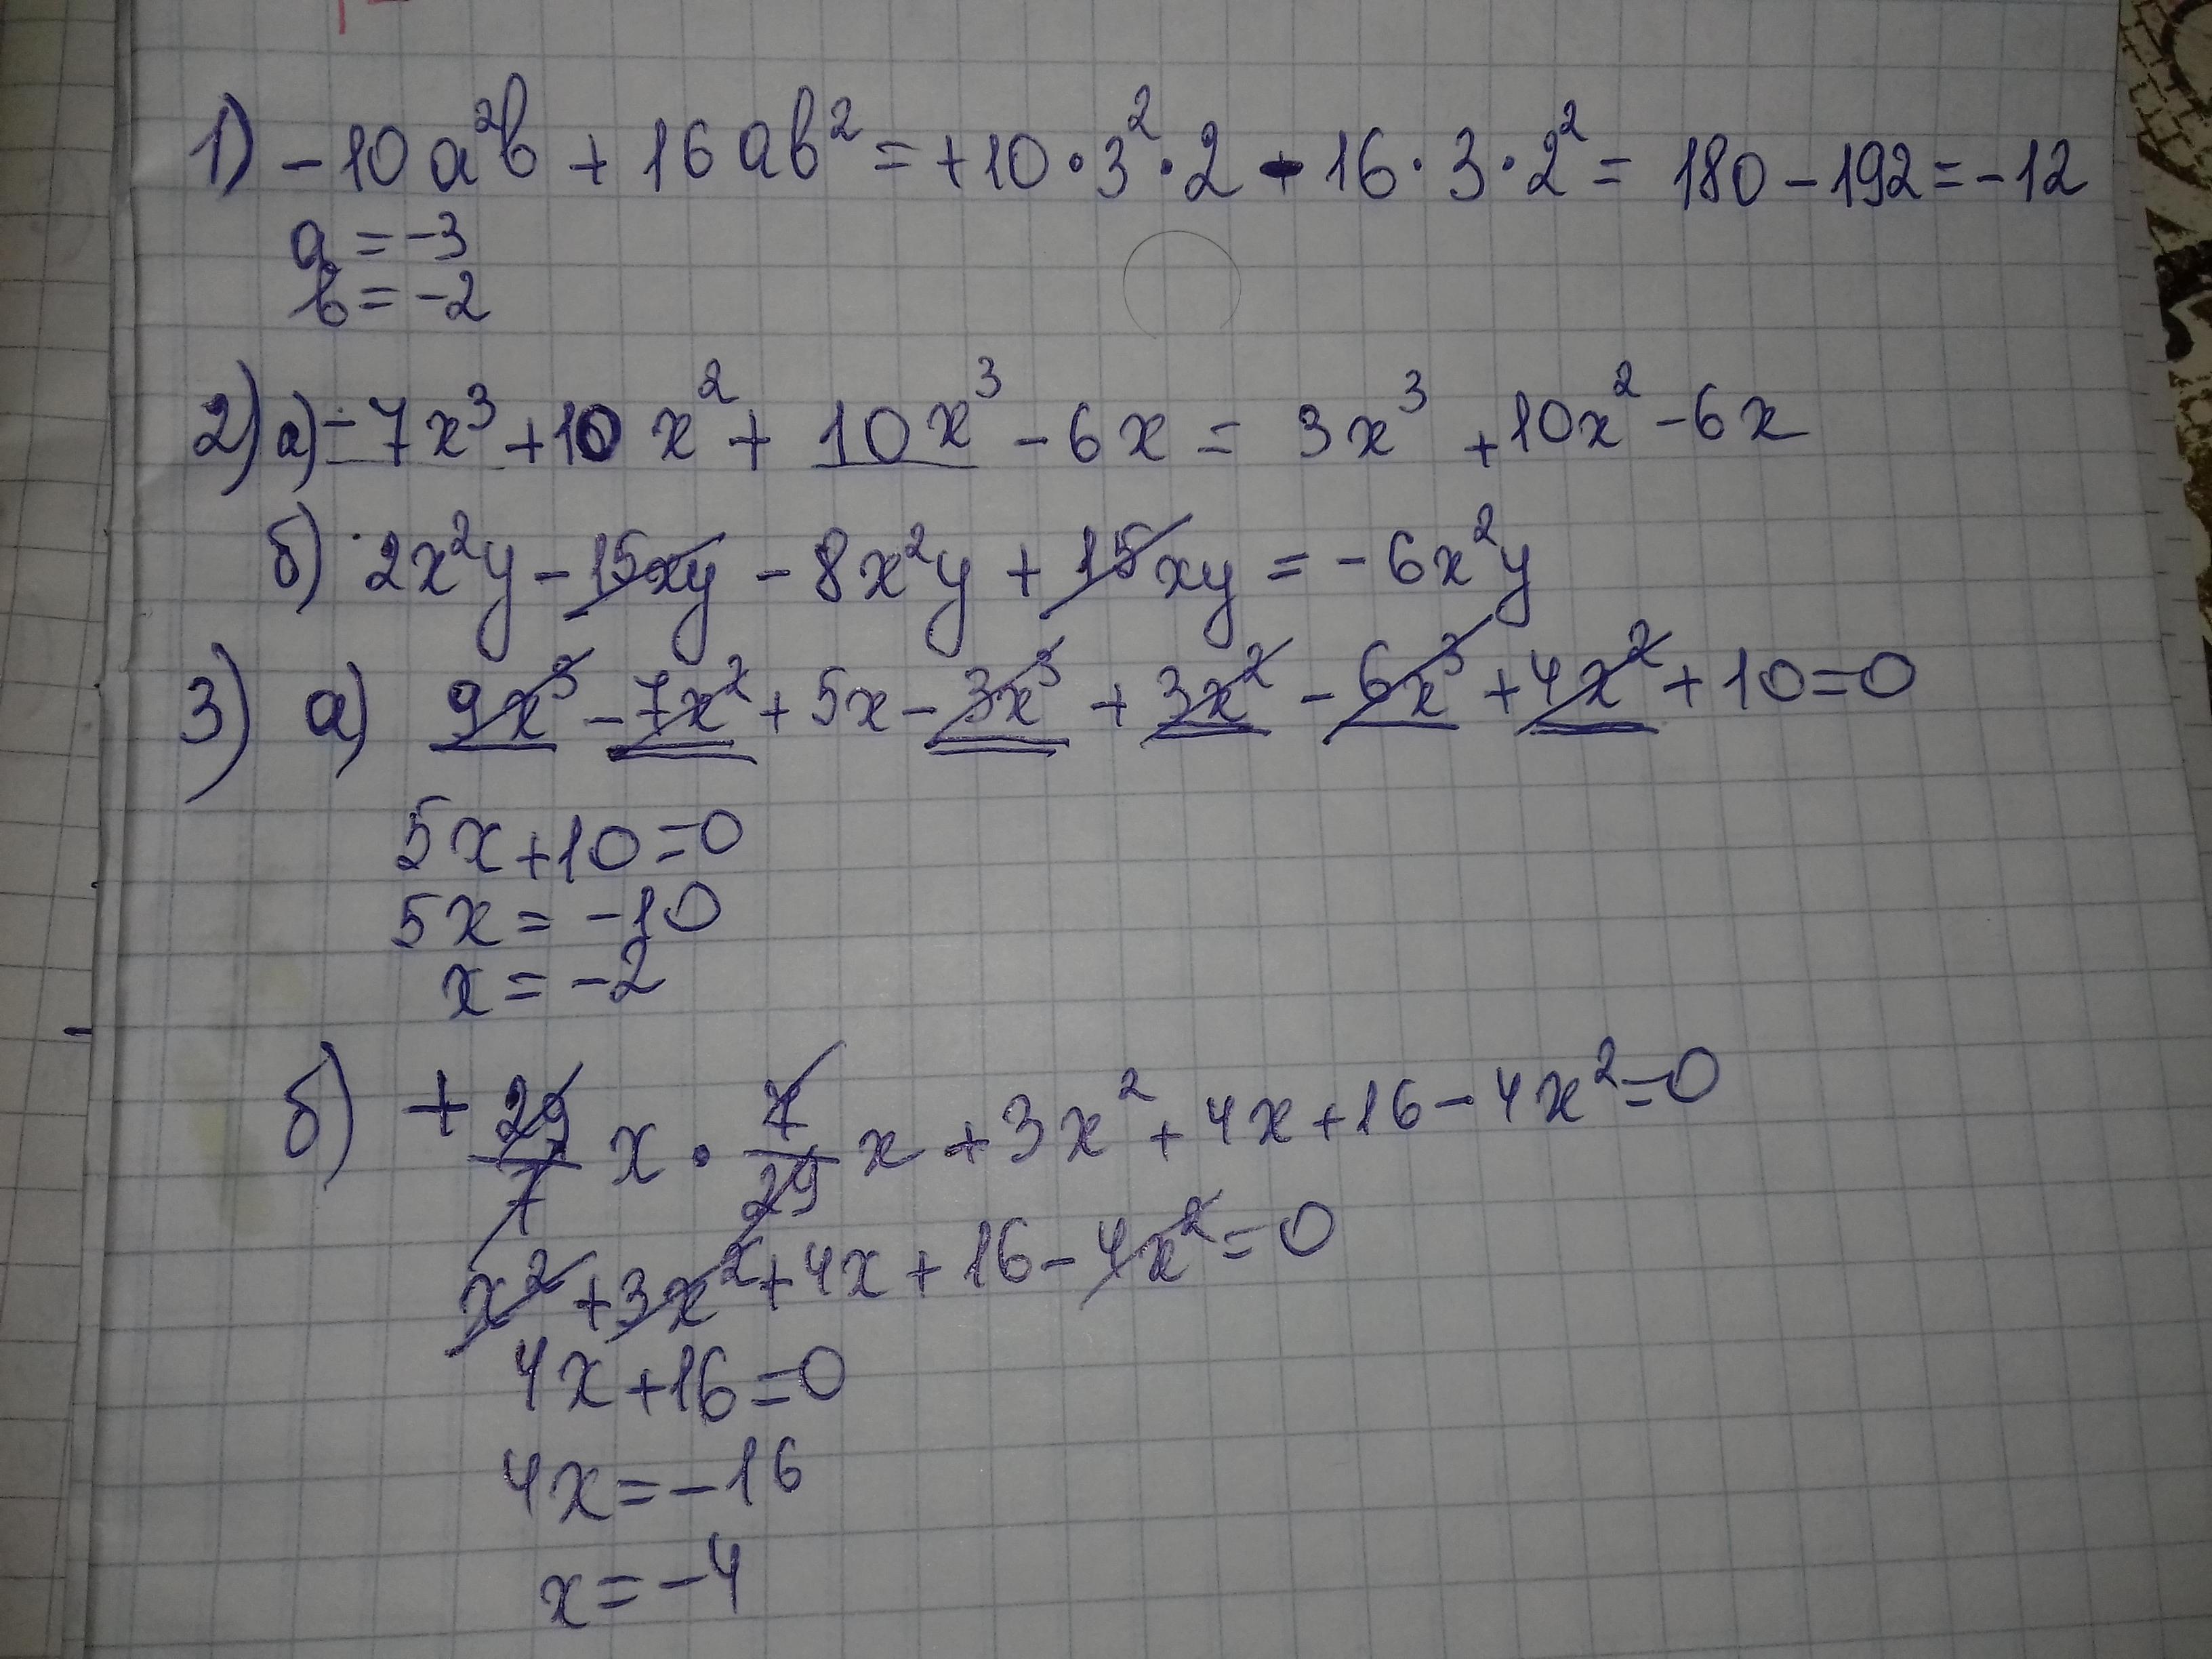 1) -10a²b + 16ab² = +10·3²·2 - 16·3·2² = 180 - 192 = -12
a = -3
b = -2
2) а) -7x³ + 10x² + 10x³ - 6x = 3x³ + 10x² - 6x
б) 2x²y - 15xy - 8x²y + 15xy = -6x²y
3) а) 9x³ - 7x² + 5x - 3x³ + 3x² - 6x³ + 4x² + 10 = 0
5x + 10 = 0
5x = -10
x = -2
б) + 29/7 x · 7/29 x + 3x² + 4x + 16 - 4x² = 0
x² + 3x² + 4x + 16 - 4x² = 0
4x + 16 = 0
4x = -16
x = -4